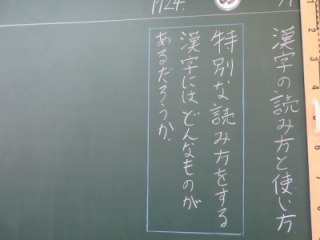 漢字の読み方と使い方
特別な読み方をする
漢字にはどんなものが
あるだろうか。